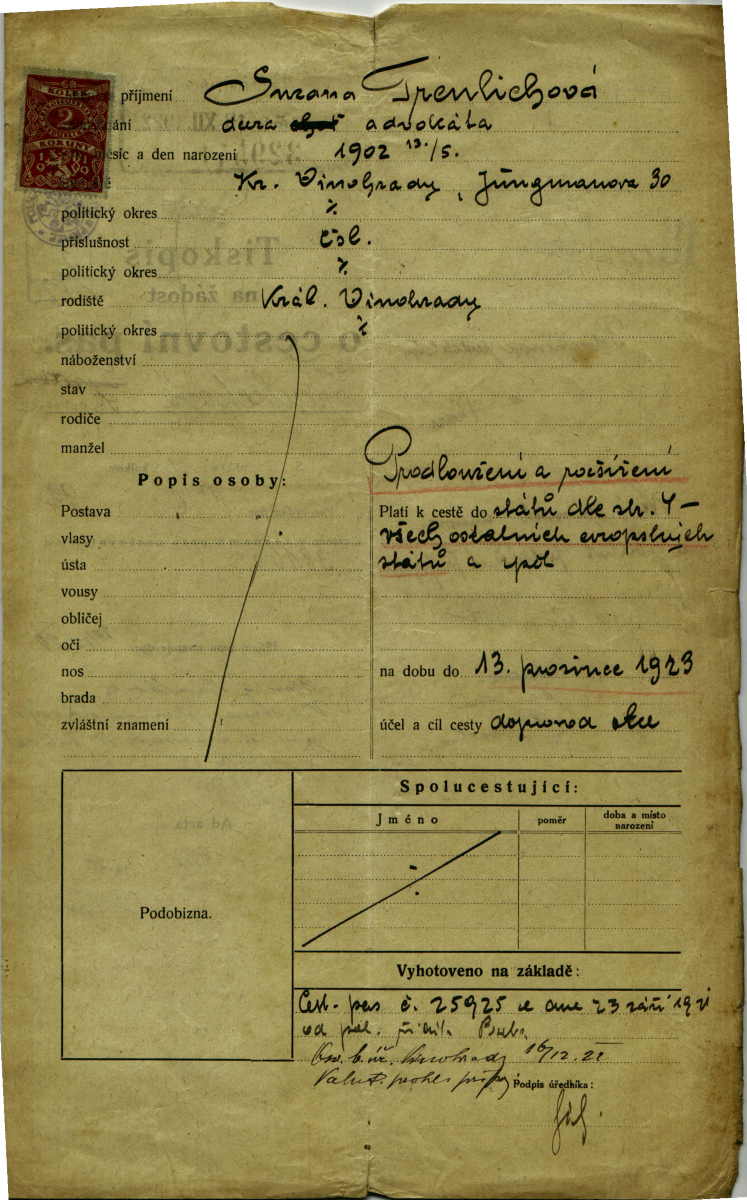 KOLEK
2
KORUNY
1919
příjmení Suzana
dcera advokáta
měsíc a den narození 1902 13./5.
Kr. Vinohrady, Jungmanova 30
politický okres
příslušnost čsl.
politický okres
rodiště Král. Vinohrady
politický okres
náboženství
stav
rodiče
manžel
Popis osoby:
Postava
vlasy
ústa
vousy
obličej
oči
nos
brada
zvláštní znamení
Prodloužení a rozšíření
Platí k cestě do států dle str. 4 –
všech ostatních evropských
států a zpět
na dobu do 13. prosince 1923
účel a cíl cesty doprovod otce
Podobizna.
Spolucestující:
Jméno poměr doba a místo
narození
Vyhotoveno na základě:
Cest. pas č. 25925 ze dne 23 září 1921
od pol. ředit. Praha
Vinohrady 16/12. 22
Podpis úředníka: